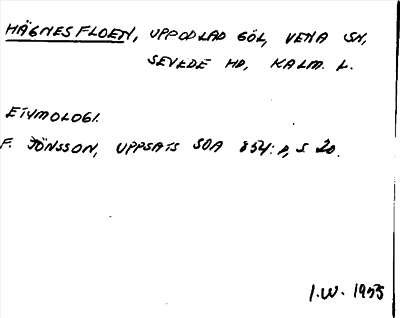 HÄGNESFLOEN, UPPODLAD GÖL, VENA SN,
SEVEDE HD, KALM. L.
ETYMOLOGI.
F. JÖNSSON, UPPSATS SOA 854:1, S 20.
I.W. 1955